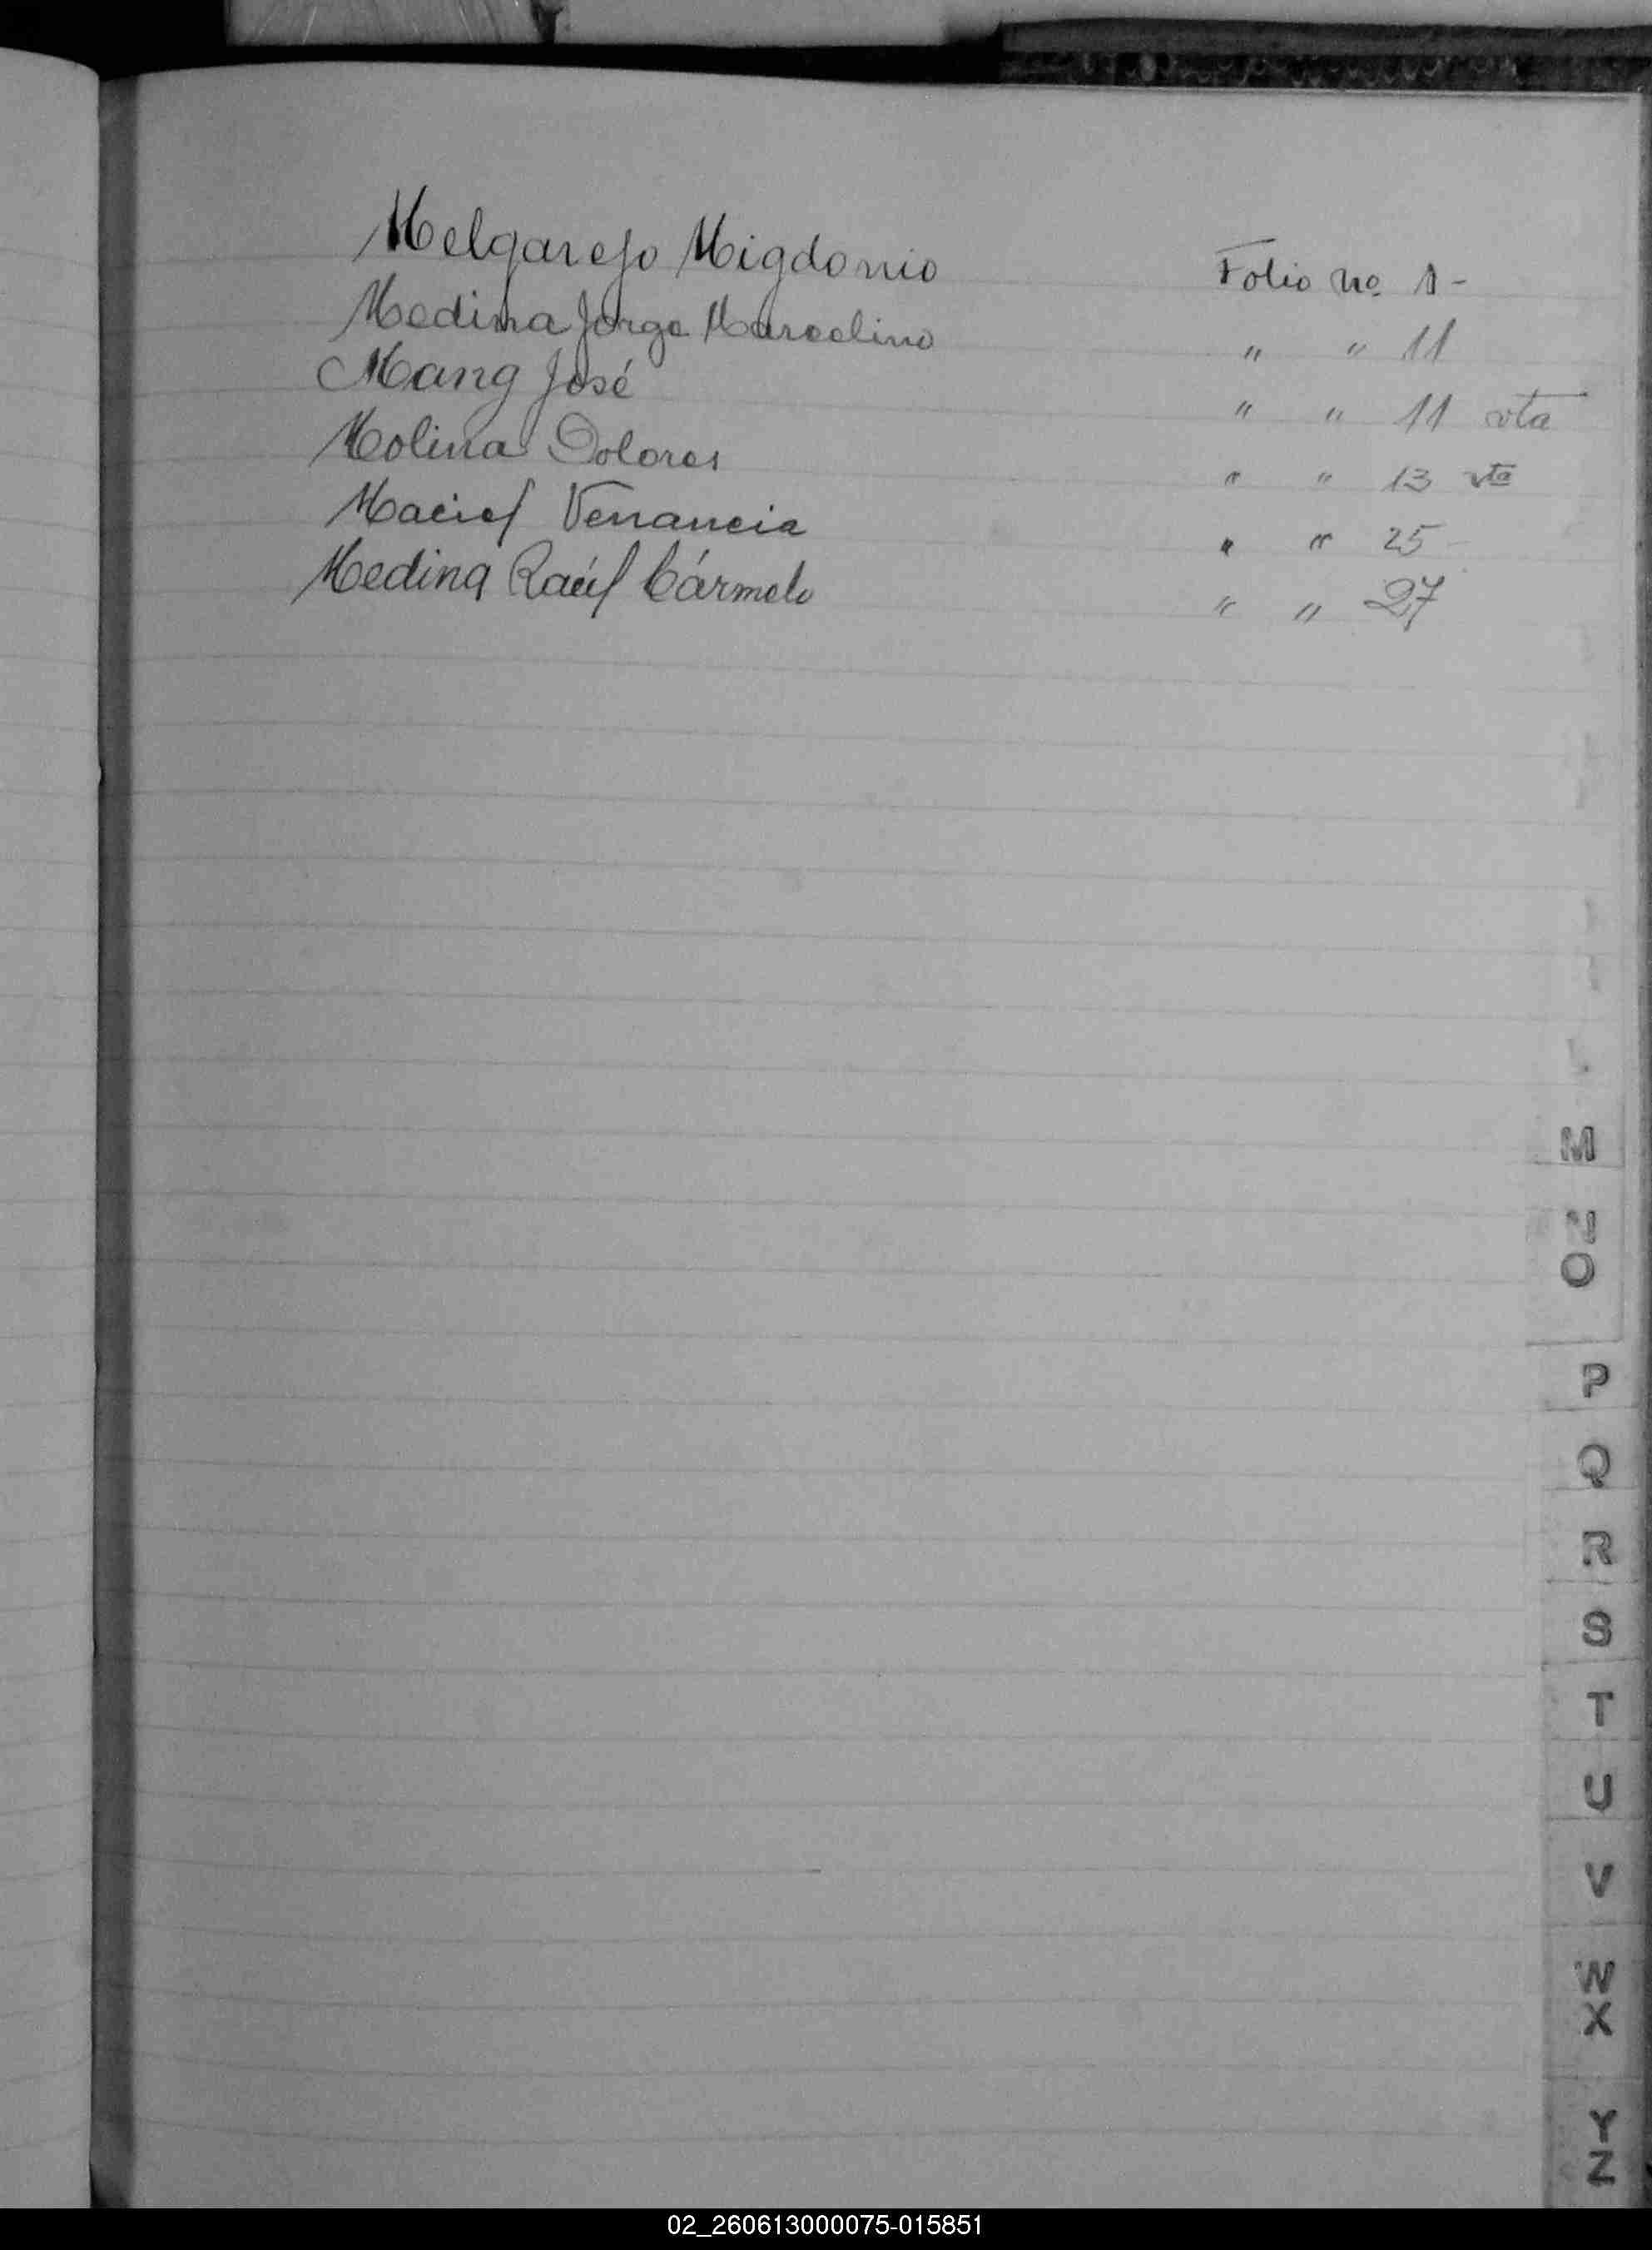 Melgarejo Migdonio Folio no. 1-
Medina Jorge Marcelino " " 11
Mang José " " 11 vta
Molina Dolores " " 13 vta
Maciel Venancia " " 25-
Medina Raúl Cármelo " " 27
M
N
O
P
Q
R
S
T
U
V
W
X
Y
Z
02_260613000075-015851